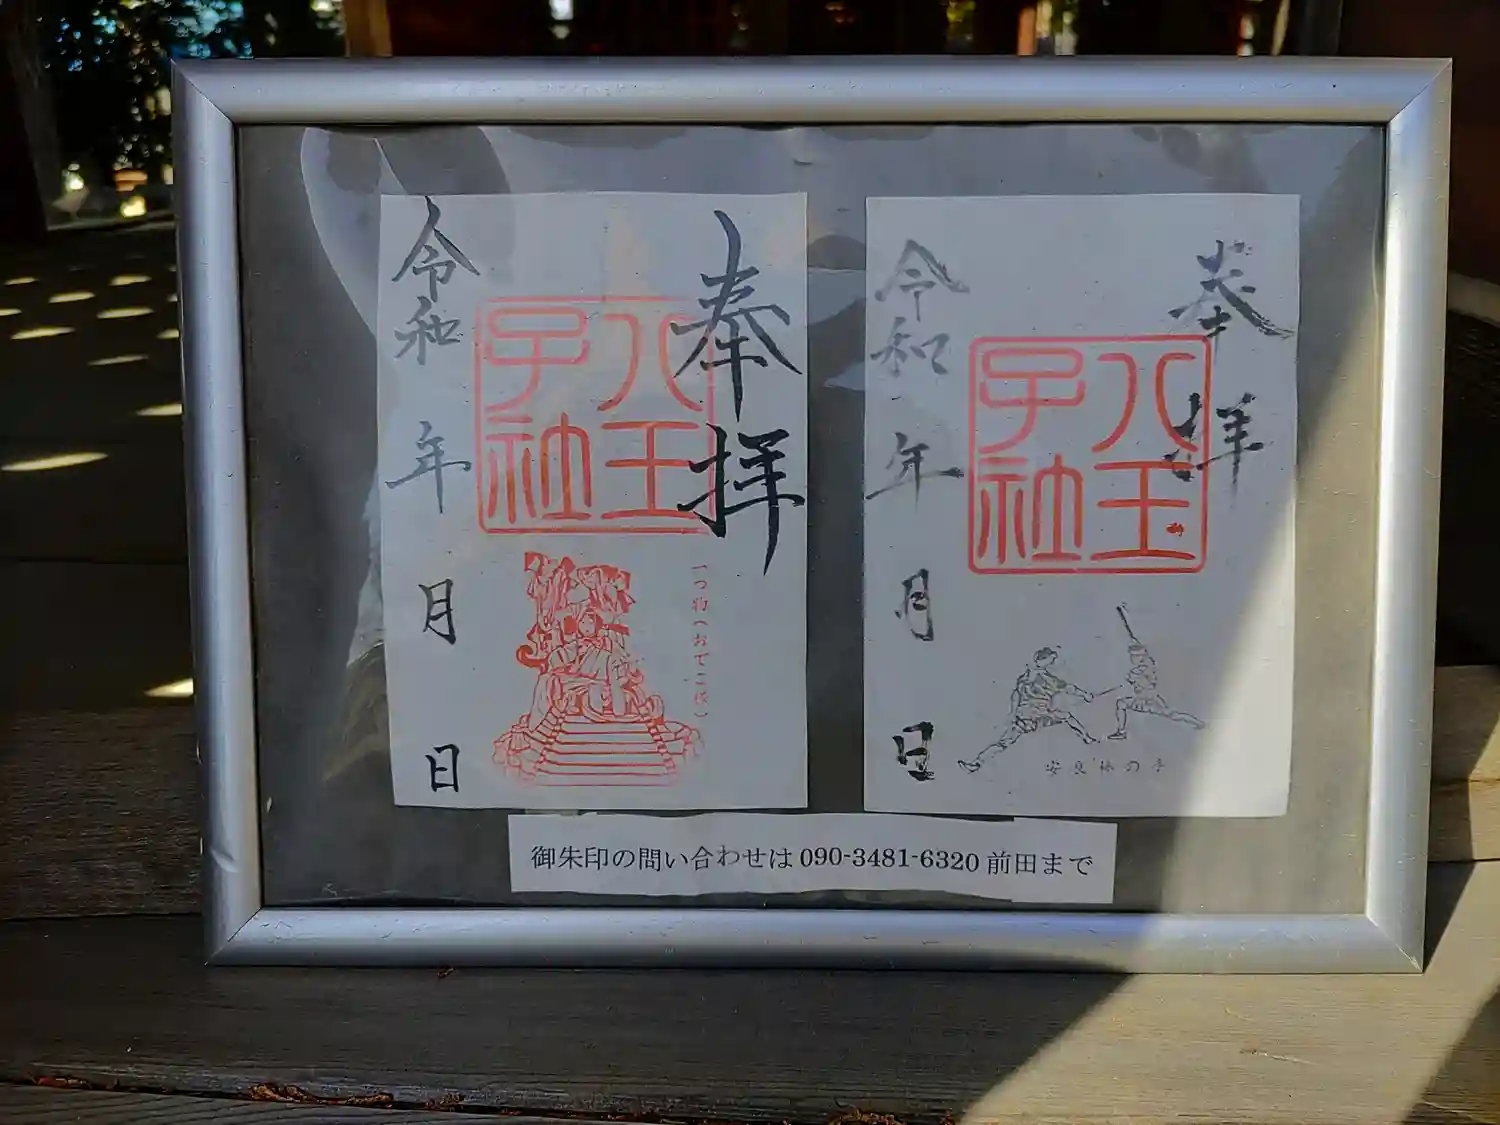 奉拝
八王子社
一つ物(おでこ様)
令和 年 月 日
奉拝
八王子社
令和 年 月 日
御朱印の問い合わせは 090-3481-6320 前田まで